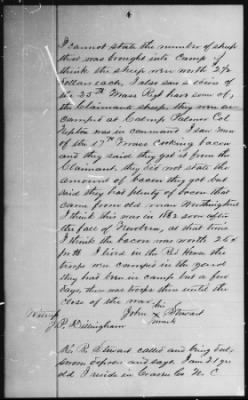 4
I cannot state the number of sheep
that was brought into camp I
think the sheep were worth 2 1/2
dollars each, I also saw a
of the 25th Mass Regt have some of
the Claimants sheep, they were en
camped at Camp Palmer Col
Upton was in command I saw men
of the 17th Mass Cooking bacon
and they said they got it from the
Claimant, they did not state the
amount of bacon they got but
said they had plenty of bacon that
came from old man
I think this was in 1862 soon after
the fall of Newbern, at that time
I think the bacon was worth 25 ¢
pr lb I lived in the the
troops were camped in the yard
they had been in camp but a few
days there was troops there until the
close of the war
his
John X Stewart
mark
Witness
J. P. Dillingham
R. Stewart called and being duly
sworn deposes and says. I am 21 yrs
old I reside in Craven Co N. C